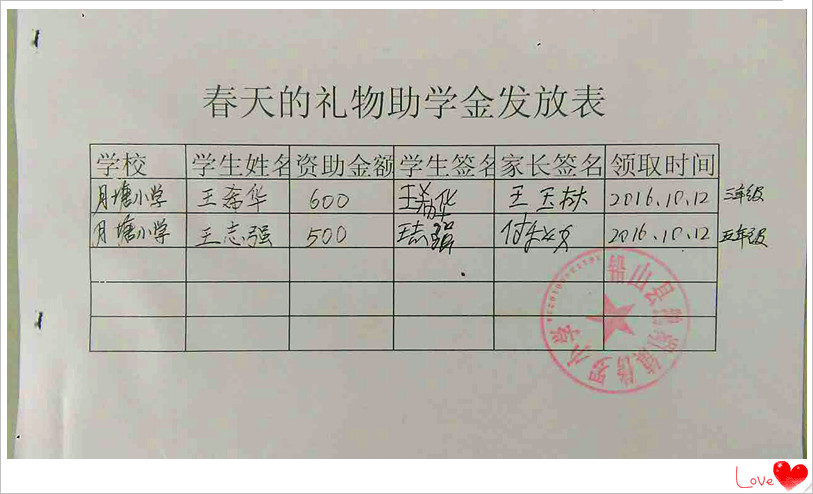 春天的礼物助学金发放表
学校 学生姓名 资助金额 学生签名 家长签名 领取时间
月塘小学 王希华 600 王希华 王玉林 2016.10.12 三年级
月塘小学 王志强 500 王志强 2016.10.12 五年级
Love